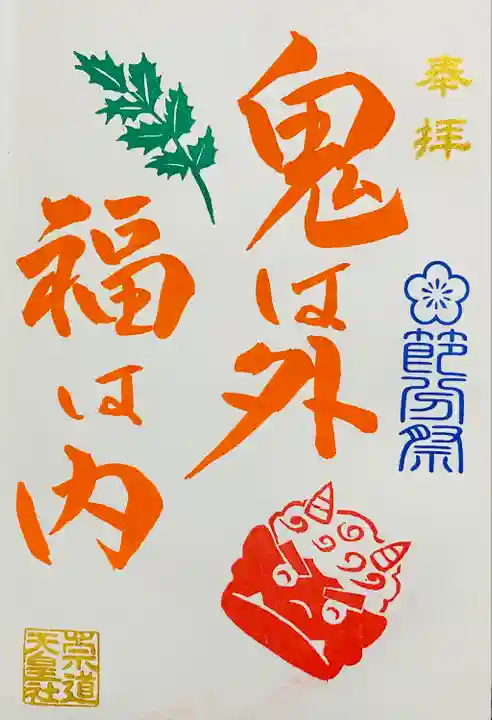 奉拝
節分祭
鬼は外
福は内
崇道
天皇社